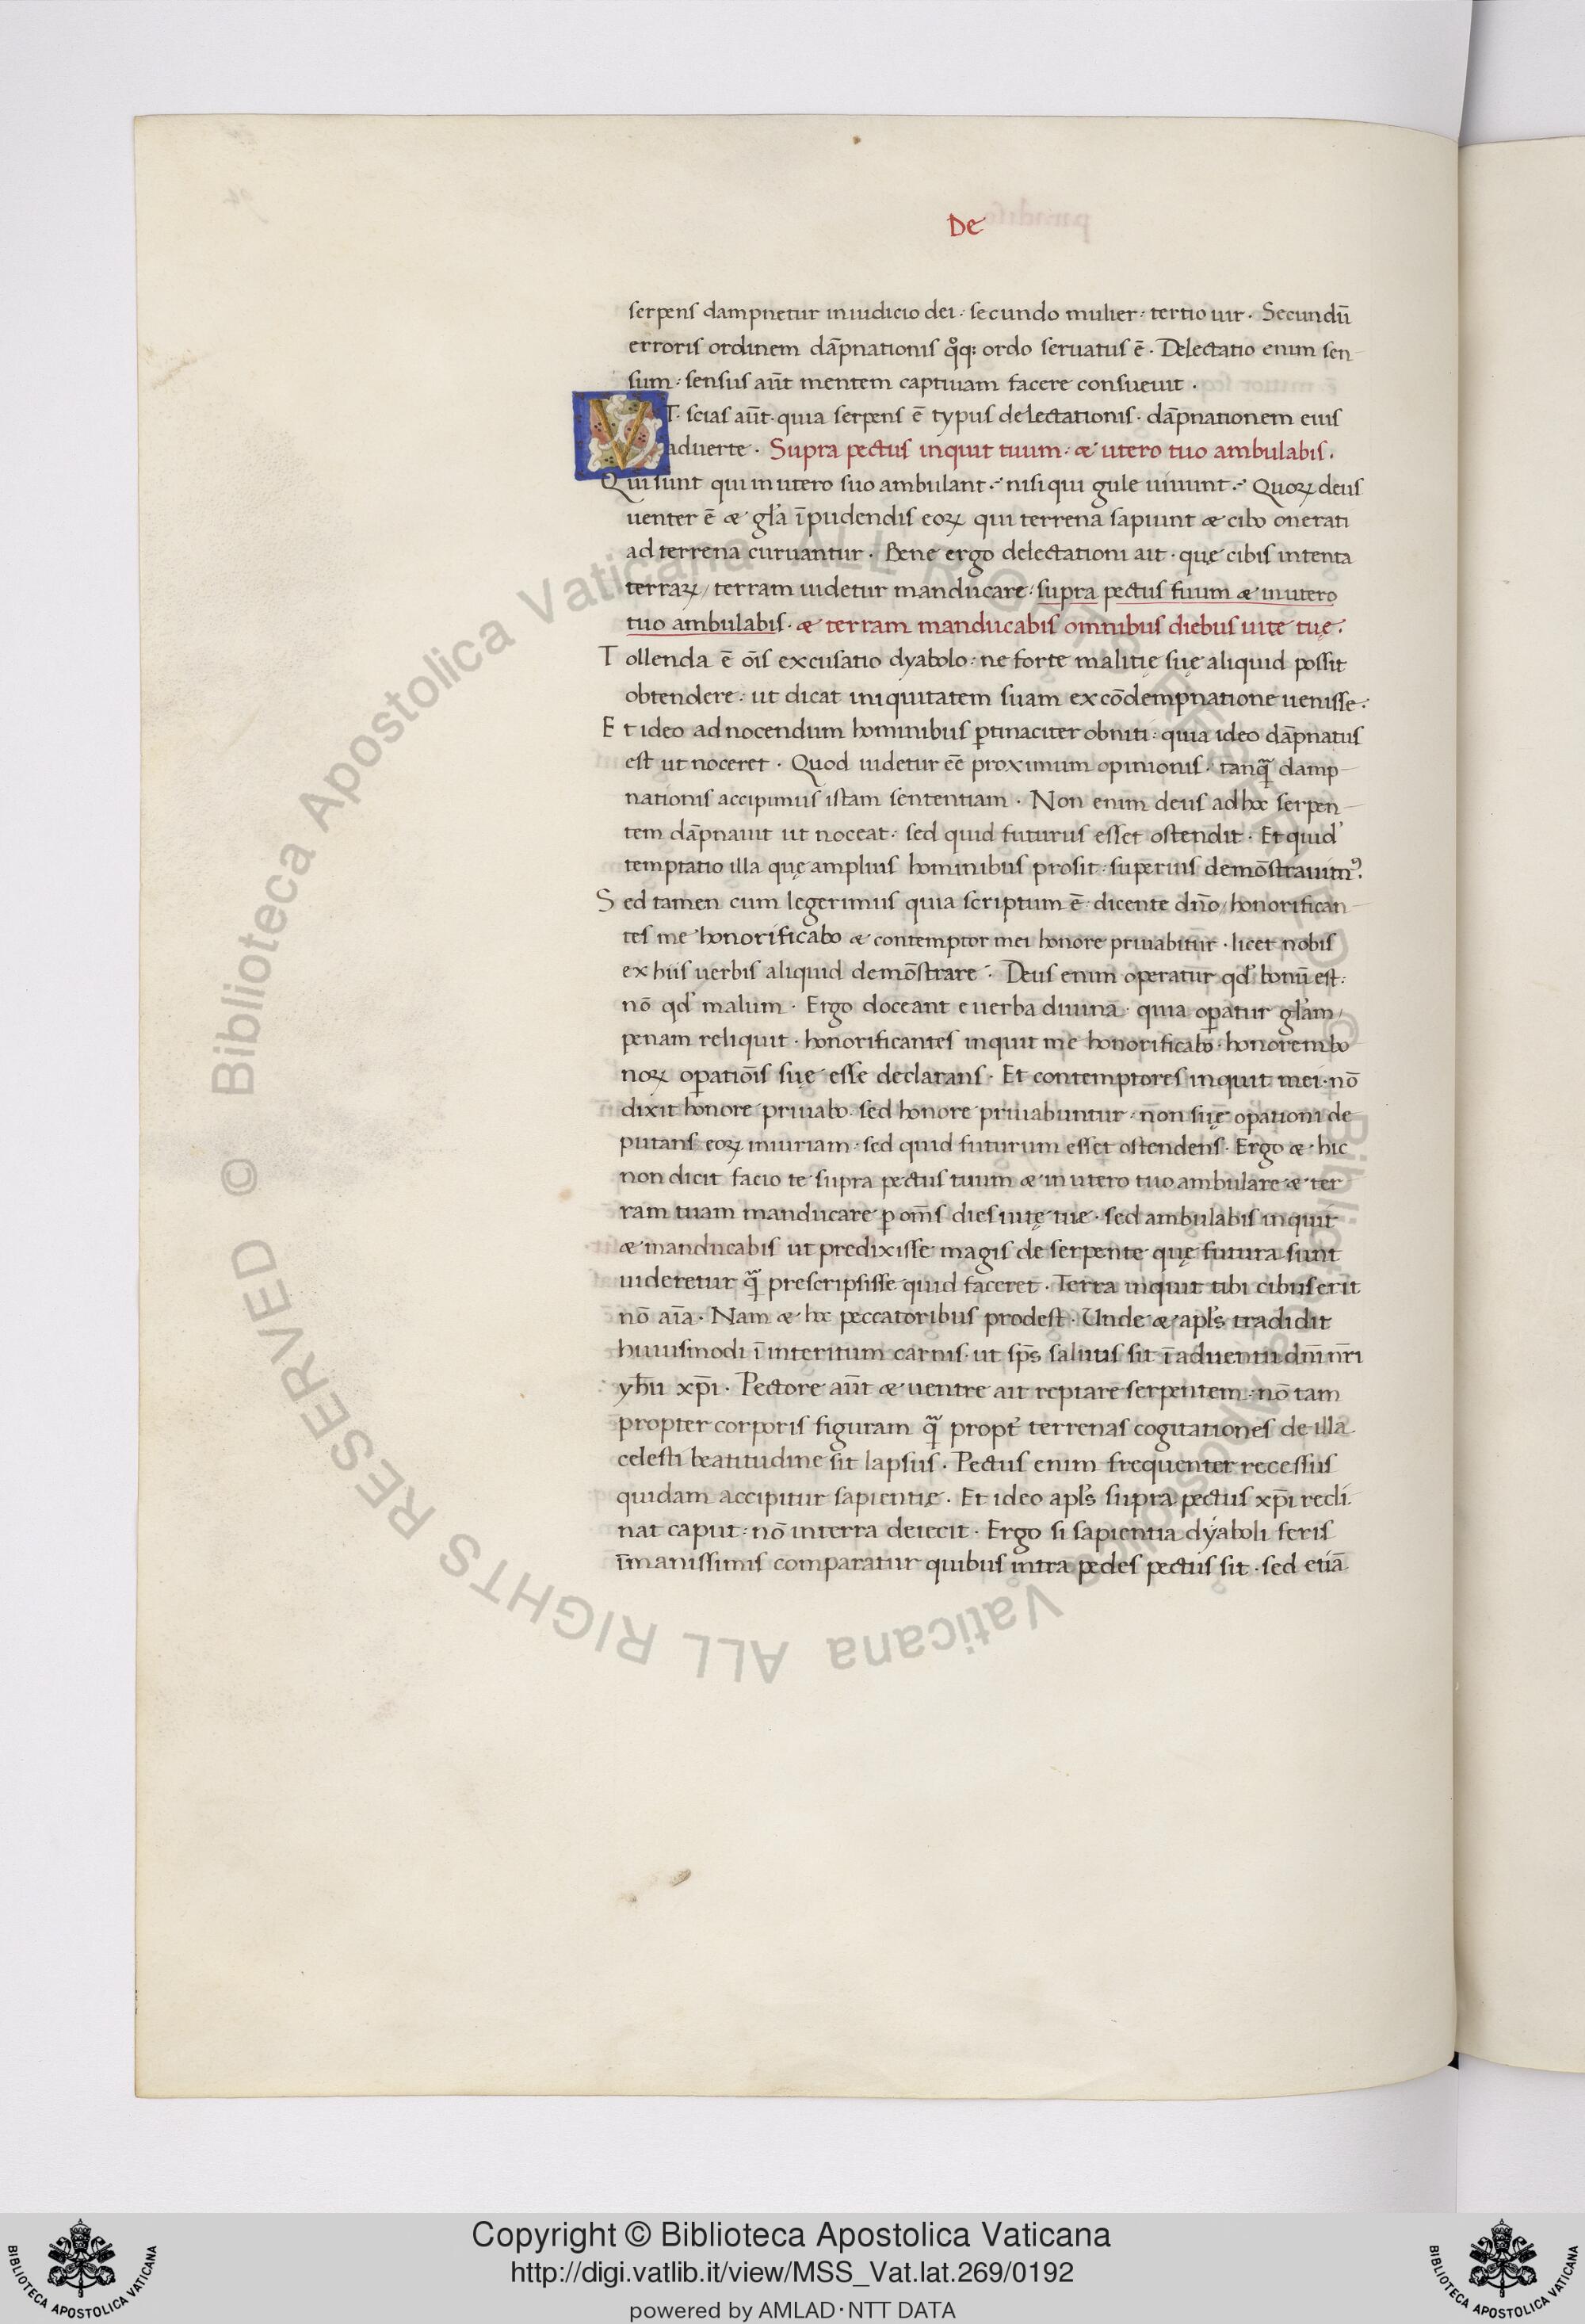 De
serpens dampnetur in iudicio dei : secundo mulier : tertio uir · Secundū
erroris ordinem dāpnationis qͦq; ordo seruatus ē · Delectatio enim sen
sum : sensus aūt mentem captiuam facere consueuit ·
VT scias aūt quia serpens ē typus delectationis · dāpnationem eius
aduerte · Supra pectus inquit tuum · & utero tuo ambulabis ·
Qui sunt qui in utero suo ambulant · nisi qui gule uiuunt · Quoꝝ deus
uenter ē & gl'a īpudendis eoꝝ qui terrena sapiunt & cibo onerati
ad terrena curuantur · Bene ergo delectationi ait · quę cibis intenta
terraꝝ / terram uidetur manducare : supra pectus suum & in utero
tuo ambulabis · & terram manducabis omnibus diebus uite tuę ·
Tollenda ē oīs excusatio dyabolo : ne forte malitię suę aliquid possit
obtendere : ut dicat iniquitatem suam ex cōdempnatione uenisse ·
Et ideo ad nocendum hominibus ꝑtinaciter obniti : quia ideo dāpnatus
est ut noceret · Quod uidetur eē proximum opinionis · tanq̄ damp
nationis accipimus istam sententiam · Non enim deus ad hoc serpen
tem dāpnauit ut noceat · sed quid futurus esset ostendit · Et quid'
temptatio illa quę amplius hominibus prosit · superius demōstrauimꝰ.
Sed tamen cum legerimus quia scriptum ē dicente dn̄o / honorifican
tes me honorificabo & contemptor mei honore priuabitur · licet nobis
ex hiis uerbis aliquid demōstrare · Deus enim operatur qd' bonū est :
nō qd' malum · Ergo doceant e uerba diuina · quia oꝑatur gl'am /
penam reliquit · honorificantes inquit me honorificabo · honorem bo
noꝝ oꝑatiōis suę esse declarans · Et contemptores inquit mei · nō
dixit honore priuabo · sed honore priuabuntur · non suę oꝑationi de
putans eoꝝ iniuriam · sed quid futurum esset ostendens · Ergo & hic
non dicit facio te supra pectus tuum & in utero tuo ambulare & ter
ram tuam manducare ꝑ om̄s dies uitę tue · sed ambulabis inquit
& manducabis ut predixisse magis de serpente quę futura sunt
uideretur q̄ prescripsisse quid faceret · Terra inquit tibi cibus erit
nō aīa · Nam & hoc peccatoribus prodest · Unde & apl's tradidit
huiusmodi ī interitum carnis · ut sp̄s saluus sit ī aduentu dn̄i nr̄i
yh̄u xp̄i · Pectore aūt & uentre ait reptare serpentem : nō tam
propter corporis figuram q̄ propt' terrenas cogitationes de illa
celesti beatitudine sit lapsus · Pectus enim frequenter recessus
quidam accipitur sapientię · Et ideo apl's supra pectus xp̄i recli
nat caput : nō in terra deiecit · Ergo si sapientia dyaboli feris
īmanissimis comparatur quibus intra pedes pectus sit · sed etiā
© Biblioteca Apostolica Vaticana ALL RIGHTS RESERVED © Biblioteca Apostolica Vaticana ALL RIGHTS RESERVED
Copyright © Biblioteca Apostolica Vaticana
http://digi.vatlib.it/view/MSS_Vat.lat.269/0192
powered by AMLAD·NTT DATA
BIBLIOTECA APOSTOLICA VATICANA
BIBLIOTECA APOSTOLICA VATICANA